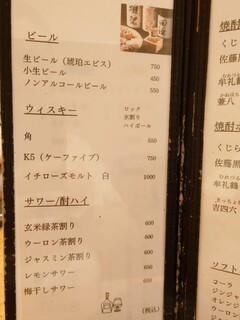 ビール
生ビール（琥珀ヱビス） 750
小生ビール 450
ノンアルコールビール 550
ウィスキー
ロック
水割り
ハイボール
角 550
K5（ケーファイブ） 750
イチローズモルト 白 1000
サワー/酎ハイ
玄米緑茶割り 600
ウーロン茶割り 600
ジャスミン茶割り 600
レモンサワー 600
梅干しサワー 650
（税込）
焼酎
くじら
佐藤
兼八
焼酎
くじら
佐藤黒
吉四六
ソフト
コーラ
ジンジャ
オレンジ
ウーロン